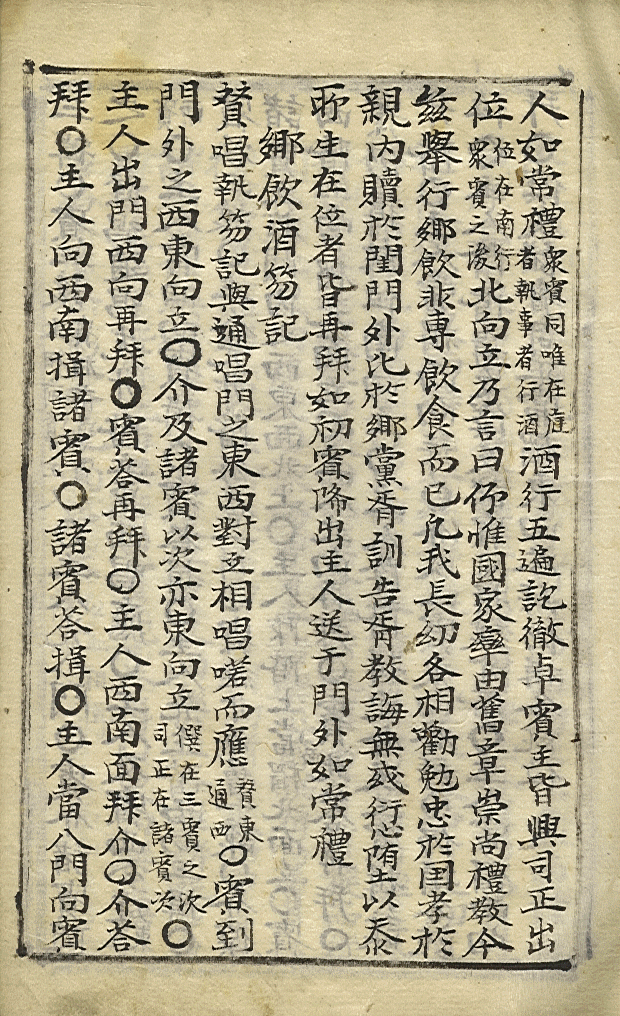 人如常禮衆賓同唯在庭者執事者行酒酒行五遍訖徹卓賓主皆興司正出
位位在南行衆賓之後北向立乃言曰仰惟國家率由舊章崇尚禮教今
玆擧行鄕飮非專飮食而已凡我長幼各相勸勉忠於国孝於
親內睦於閨門外比於鄕黨胥訓告胥敎誨無或愆墮以忝
所生在位者皆再拜如初賓降出主人送于門外如常禮
鄕飮酒笏記
賛唱執笏記與通唱門之東西對立相唱喏而應賛東通西〇賓到
門外之西東向立〇介及諸賓以次亦東向立僎在三賓之次司正在諸賓次〇
主人出門西向再拜〇賓荅再拜〇主人西南面拜介〇介荅
拜〇主人向西南揖諸賓〇諸賓荅揖〇主人當入門向賓